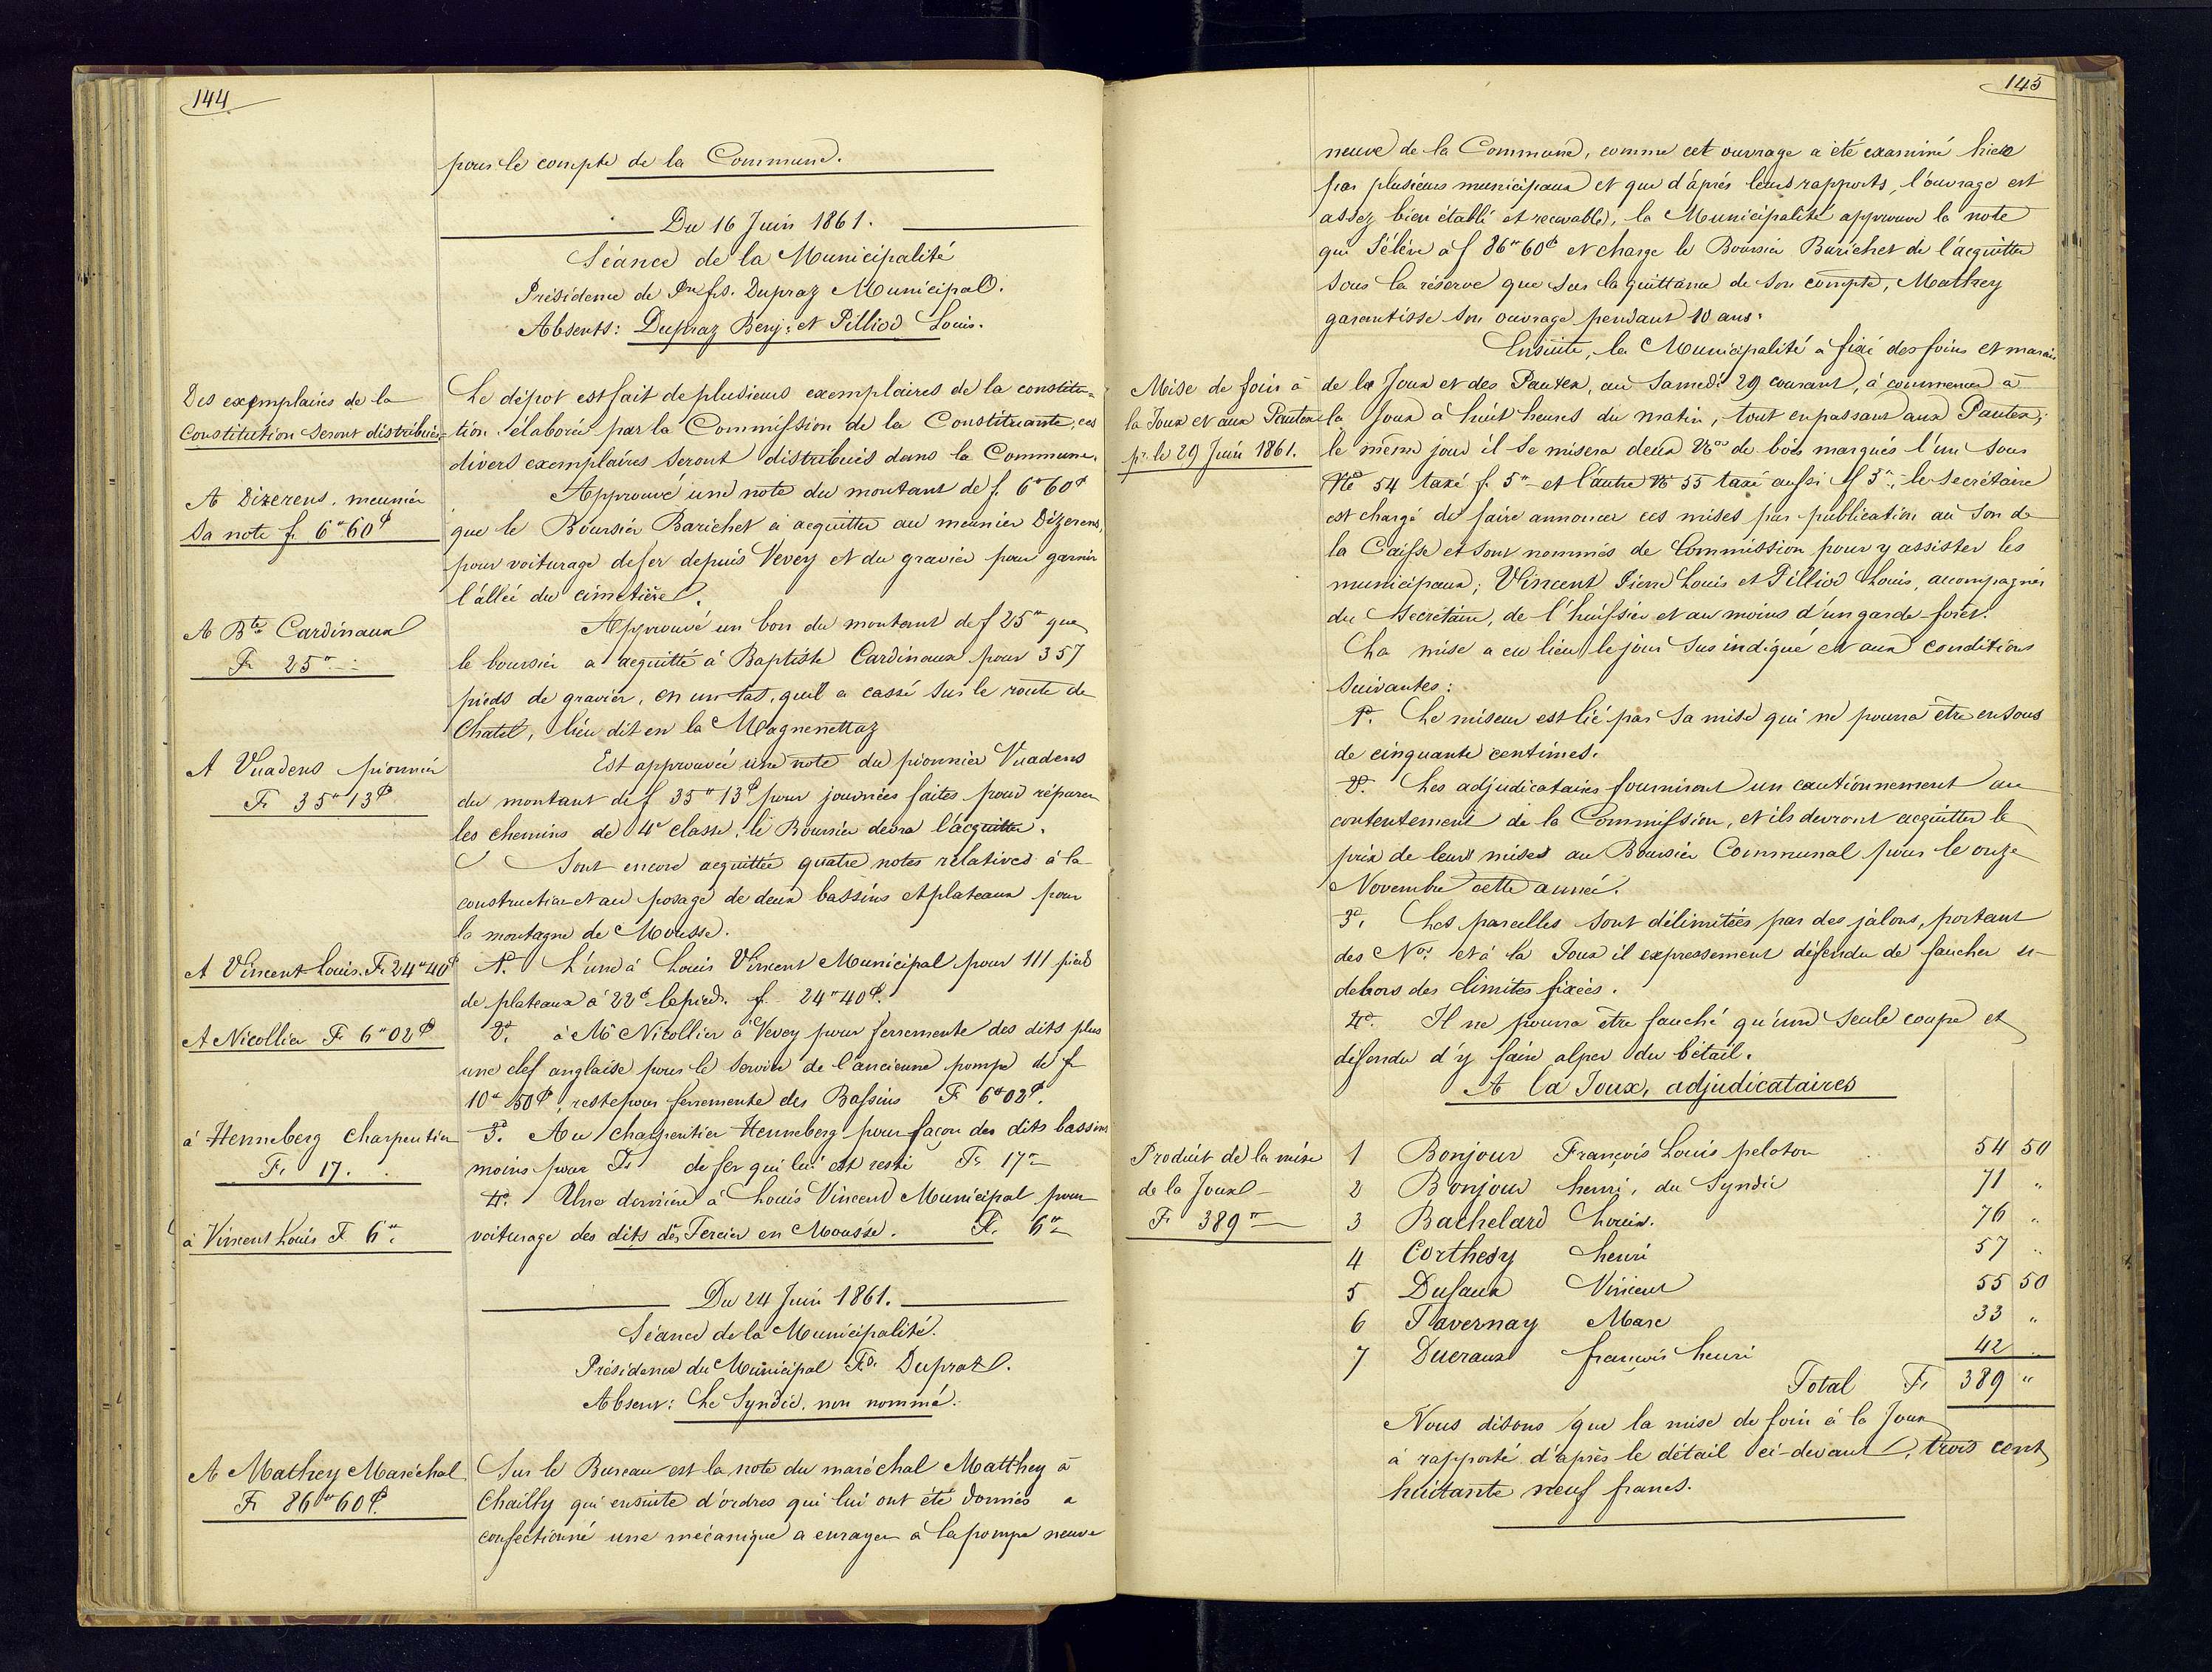 144
pour le compte de la Commune.
Du 16 Juin 1861.
Séance de la Municipalité
Présidence de Dupraz Municipal.
Absents: Dupraz Benj: et Pilliod Louis.
Des exemplaires de la
Constitution seront distribués
Le dépot est fait de plusieurs exemplaires de la constitu=
tion élaborée par la Commission de la Constituante, ces
divers exemplaires seront distribués dans la Commune.
A Dizerens, meunier
sa note f. 6"60c
Approuvé une note du montant de f. 6"60c
que le Boursier Barichet a acquitter au meunier Dizerens,
pour voiturage de fer depuis Vevey et du gravier pour garnir
l'allée du cimetière.
A Bte Cardinaux
Fr 25"-:
Approuvé un bon du montant de f 25" que
le boursier a acquitté à Baptiste Cardinaux pour 357
pieds de gravier, en un tas, qu'il a cassé sur le route de
Chatel, lieu dit en la Magnenettaz
A Vuadens pionnier
Fr 35"13c
Est approuvée une note du pionnier Vuadens
du montant de f 35"13c pour journées faites pour réparer
les chemins de 4e classe, le Boursier devra l'acquitter.
Sont encore acquittée quatre notes relatives à la
construction et au posage de deux bassins et plateaux pour
la montagne de Mousse.
A Vincent Louis. Fr 24"40c
1o. L'une à Louis Vincent Municipal pour 111 pieds
de plateaux à 22c le pied. f. 24"40c.
A Nicollier Fr 6"02c
2o. à Mr Nicollier à Vevey pour ferremente des dits plus
une clef anglaise pour le service de l'ancienne pompe de fr
10"50c, reste pour ferremente des Bassins Fr 6"02c.
à Henneberg charpentier
Fr. 17.
3o. Au charpentier Henneberg pour façon des dits bassins
moins pour Fr de fer qui lui est resté Fr 17"-
4o. Une dernière à Louis Vincent Municipal pour
à Vincent Louis Fr 6".
voiturage des dits dès Fercier en Mousse. Fr. 6"-
Du 24 Juin 1861.
Séance de la Municipalité.
Présidence du Municipal Fs. Dupraz.
Absent: Le Syndic, non nommé.
A Mathey Maréchal
Fr 86"60c.
Sur le Bureau est la note du maréchal Matthey à
Chailly qui ensuite d'ordres qui lui ont été donnés a
confectionné une mécanique a enrayer à la pompe neuve
145
neuve de la Commune, comme cet ouvrage a été examiné hier
par plusieurs municipaux et que d'après leurs rapports, l'ouvrage est
assez bien établi et recevable, la Municipalité approuve la note
qui s'élève à f 86"60c et charge le Boursier Barichet de l'acquitter
sous la réserve que sur la quittance de son compte, Mathey
garantisse son ouvrage pendant 10 ans.
Ensuite, la Municipalité a fixé des foins et marais
Mise de foin à
la Joux et aux Pautex
pr. le 29 Juin 1861.
de la Joux et des Pautex, au Samedi 29 courant, à commencer à
la Joux à huit heures du matin, tout en passant aux Pautex;
le même jour il se misera deux Nos de bois marqués l'un sous
No 54 taxé f. 5"- et l'autre No 55 taxé aussi f 5"-, le secrétaire
est chargé de faire annoncer ces mises par publication au son de
la Caisse et sont nommés de Commission pour y assister les
municipaux; Vincent Pierre Louis et Pilliod Louis, accompagnés
du Secrétaire, de l'huissier et au moins d'un garde-foret.
La mise a eu lieu le jour sus indiqué et aux conditions
suivantes:
1o. Le miseur est lié par sa mise qui ne pourra être en sous
de cinquante centimes.
2o. Les adjudicataires fourniront un cautionnement au
contentement de la Commission, et ils devront acquitter le
prix de leurs mises au Boursier Communal pour le onze
Novembre cette année.
3o. Les parcelles sont délimitées par des jalons, portant
des Nos: et à la Joux il expressement défendu de faucher en
dehors des limites fixées.
4o. Il ne pourra être fauché qu'une seule coupe et
défendu d'y faire alper du bétail.
A la Joux, adjudicataires
Produit de la mise
de la Joux
Fr 389"-
1 Bonjour François Louis peloton 54 50
2 Bonjour henri, du Syndic 71 "
3 Bachelard Louis. 76 "
4 Corthesy henri 57 "
5 Dufaux Vincent 55 50
6 Tavernay Marc 33 "
7 Ducraux françois henri 42 "
Total Fr 389 "
Nous disons que la mise de foin à la Joux
à rapporté d'après le détail ci-devant, trois cent
huitante neuf francs.